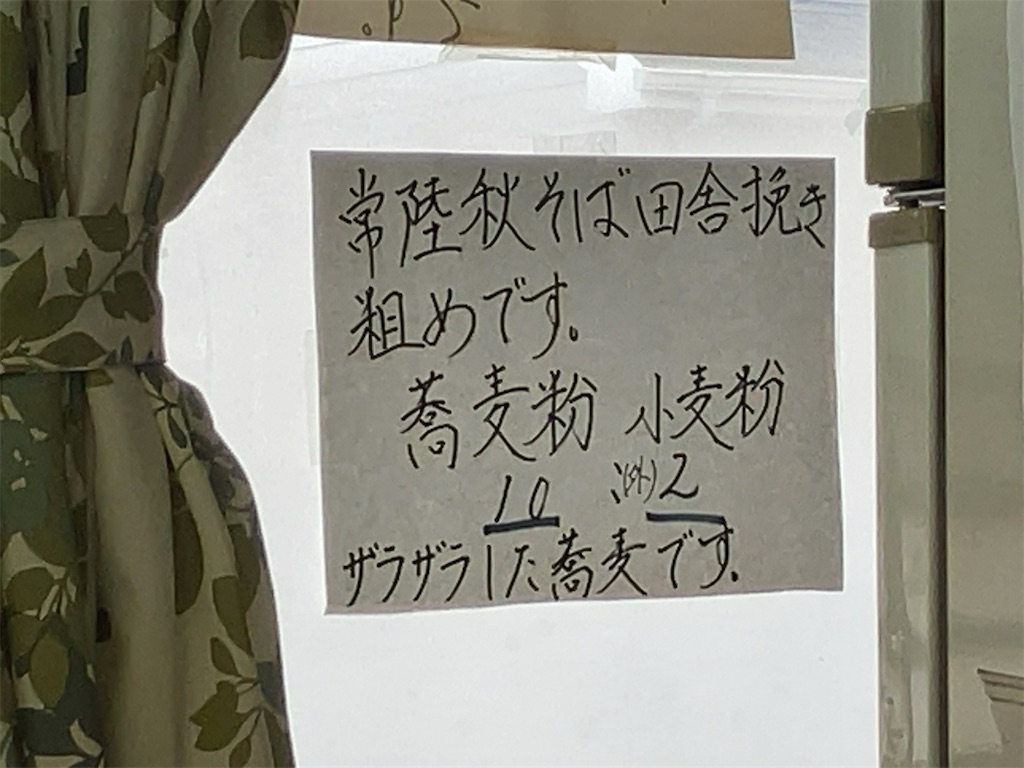 常陸秋そば田舎挽き
粗めです。
蕎麦粉 小麦粉
10 (外)2
ザラザラした蕎麦です。